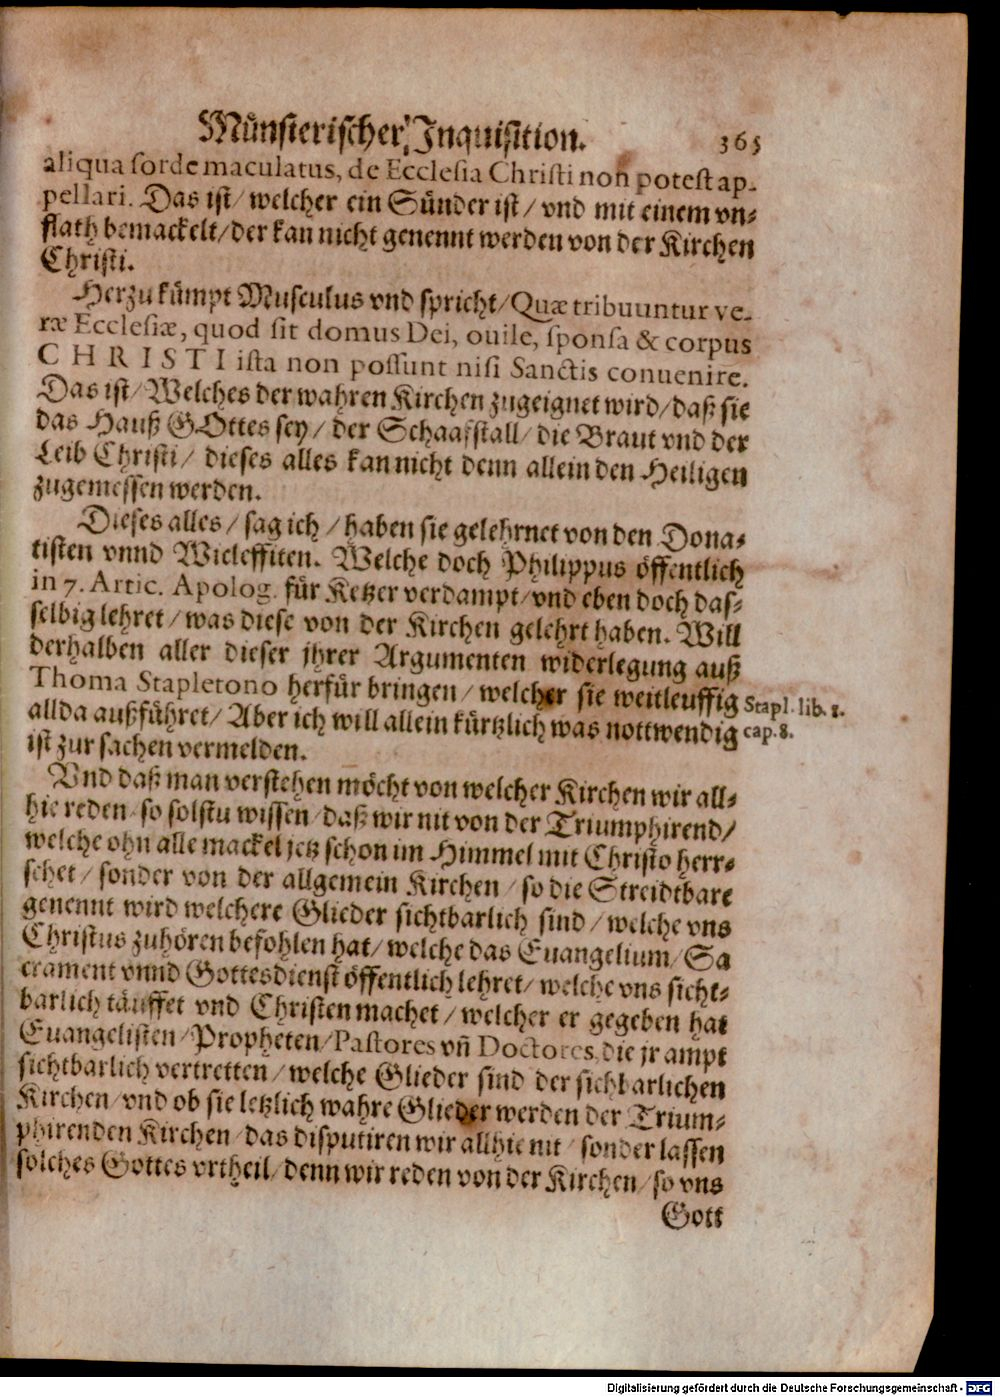 Münsterischer Inquisition. 365
aliqua sorde maculatus, de Ecclesia Christi non potest ap-
pellari. Das ist/ welcher ein Sünder ist/ vnd mit einem vn-
flath bemackelt/ der kan nicht genennt werden von der Kirchen
Christi.
Herzu kümpt Musculus vnd spricht/ Quæ tribuuntur ve-
ræ Ecclesiæ, quod sit domus Dei, ouile, sponsa & corpus
CHRISTI ista non possunt nisi Sanctis conuenire.
Das ist/ Welches der wahren Kirchen zugeignet wird/ daß sie
das Hauß GOttes sey/ der Schaafstall/ die Braut vnd der
Leib Christi/ dieses alles kan nicht denn allein den Heiligen
zugemessen werden.
Dieses alles/ sag ich/ haben sie gelehrnet von den Dona-
tisten vnnd Wicleffiten. Welche doch Philippus öffentlich
in 7. Artic. Apolog. für Ketzer verdampt/ vnd eben doch das-
selbig lehret/ was diese von der Kirchen gelehrt haben. Will
derhalben aller dieser jhrer Argumenten widerlegung auß
Thoma Stapletono herfür bringen/ welcher sie weitleuffig
allda außführet/ Aber ich will allein kürtzlich was nottwendig
ist zur sachen vermelden.
Stapl. lib. 1.
cap. 8.
Vnd daß man verstehen möcht von welcher Kirchen wir all-
hie reden/ so solstu wissen/ daß wir nit von der Triumphirend/
welche ohn alle mackel jetz schon im Himmel mit Christo herr-
schet/ sonder von der allgemein Kirchen/ so die Streidtbare
genennt wird welchere Glieder sichtbarlich sind/ welche vns
Christus zuhören befohlen hat/ welche das Euangelium/ Sa
crament vnnd Gottesdienst öffentlich lehret/ welche vns sicht-
barlich täuffet vnd Christen machet/ welcher er gegeben hat
Euangelisten/ Propheten/ Pastores vñ Doctores, die jr ampt
sichtbarlich vertretten/ welche Glieder sind der sichbarlichen
Kirchen/ vnd ob sie letzlich wahre Glieder werden der Trium-
phirenden Kirchen/ das disputiren wir allhie nit/ sonder lassen
solches Gottes vrtheil/ denn wir reden von der Kirchen/ so vns
Gott
Digitalisierung gefördert durch die Deutsche Forschungsgemeinschaft - DFG